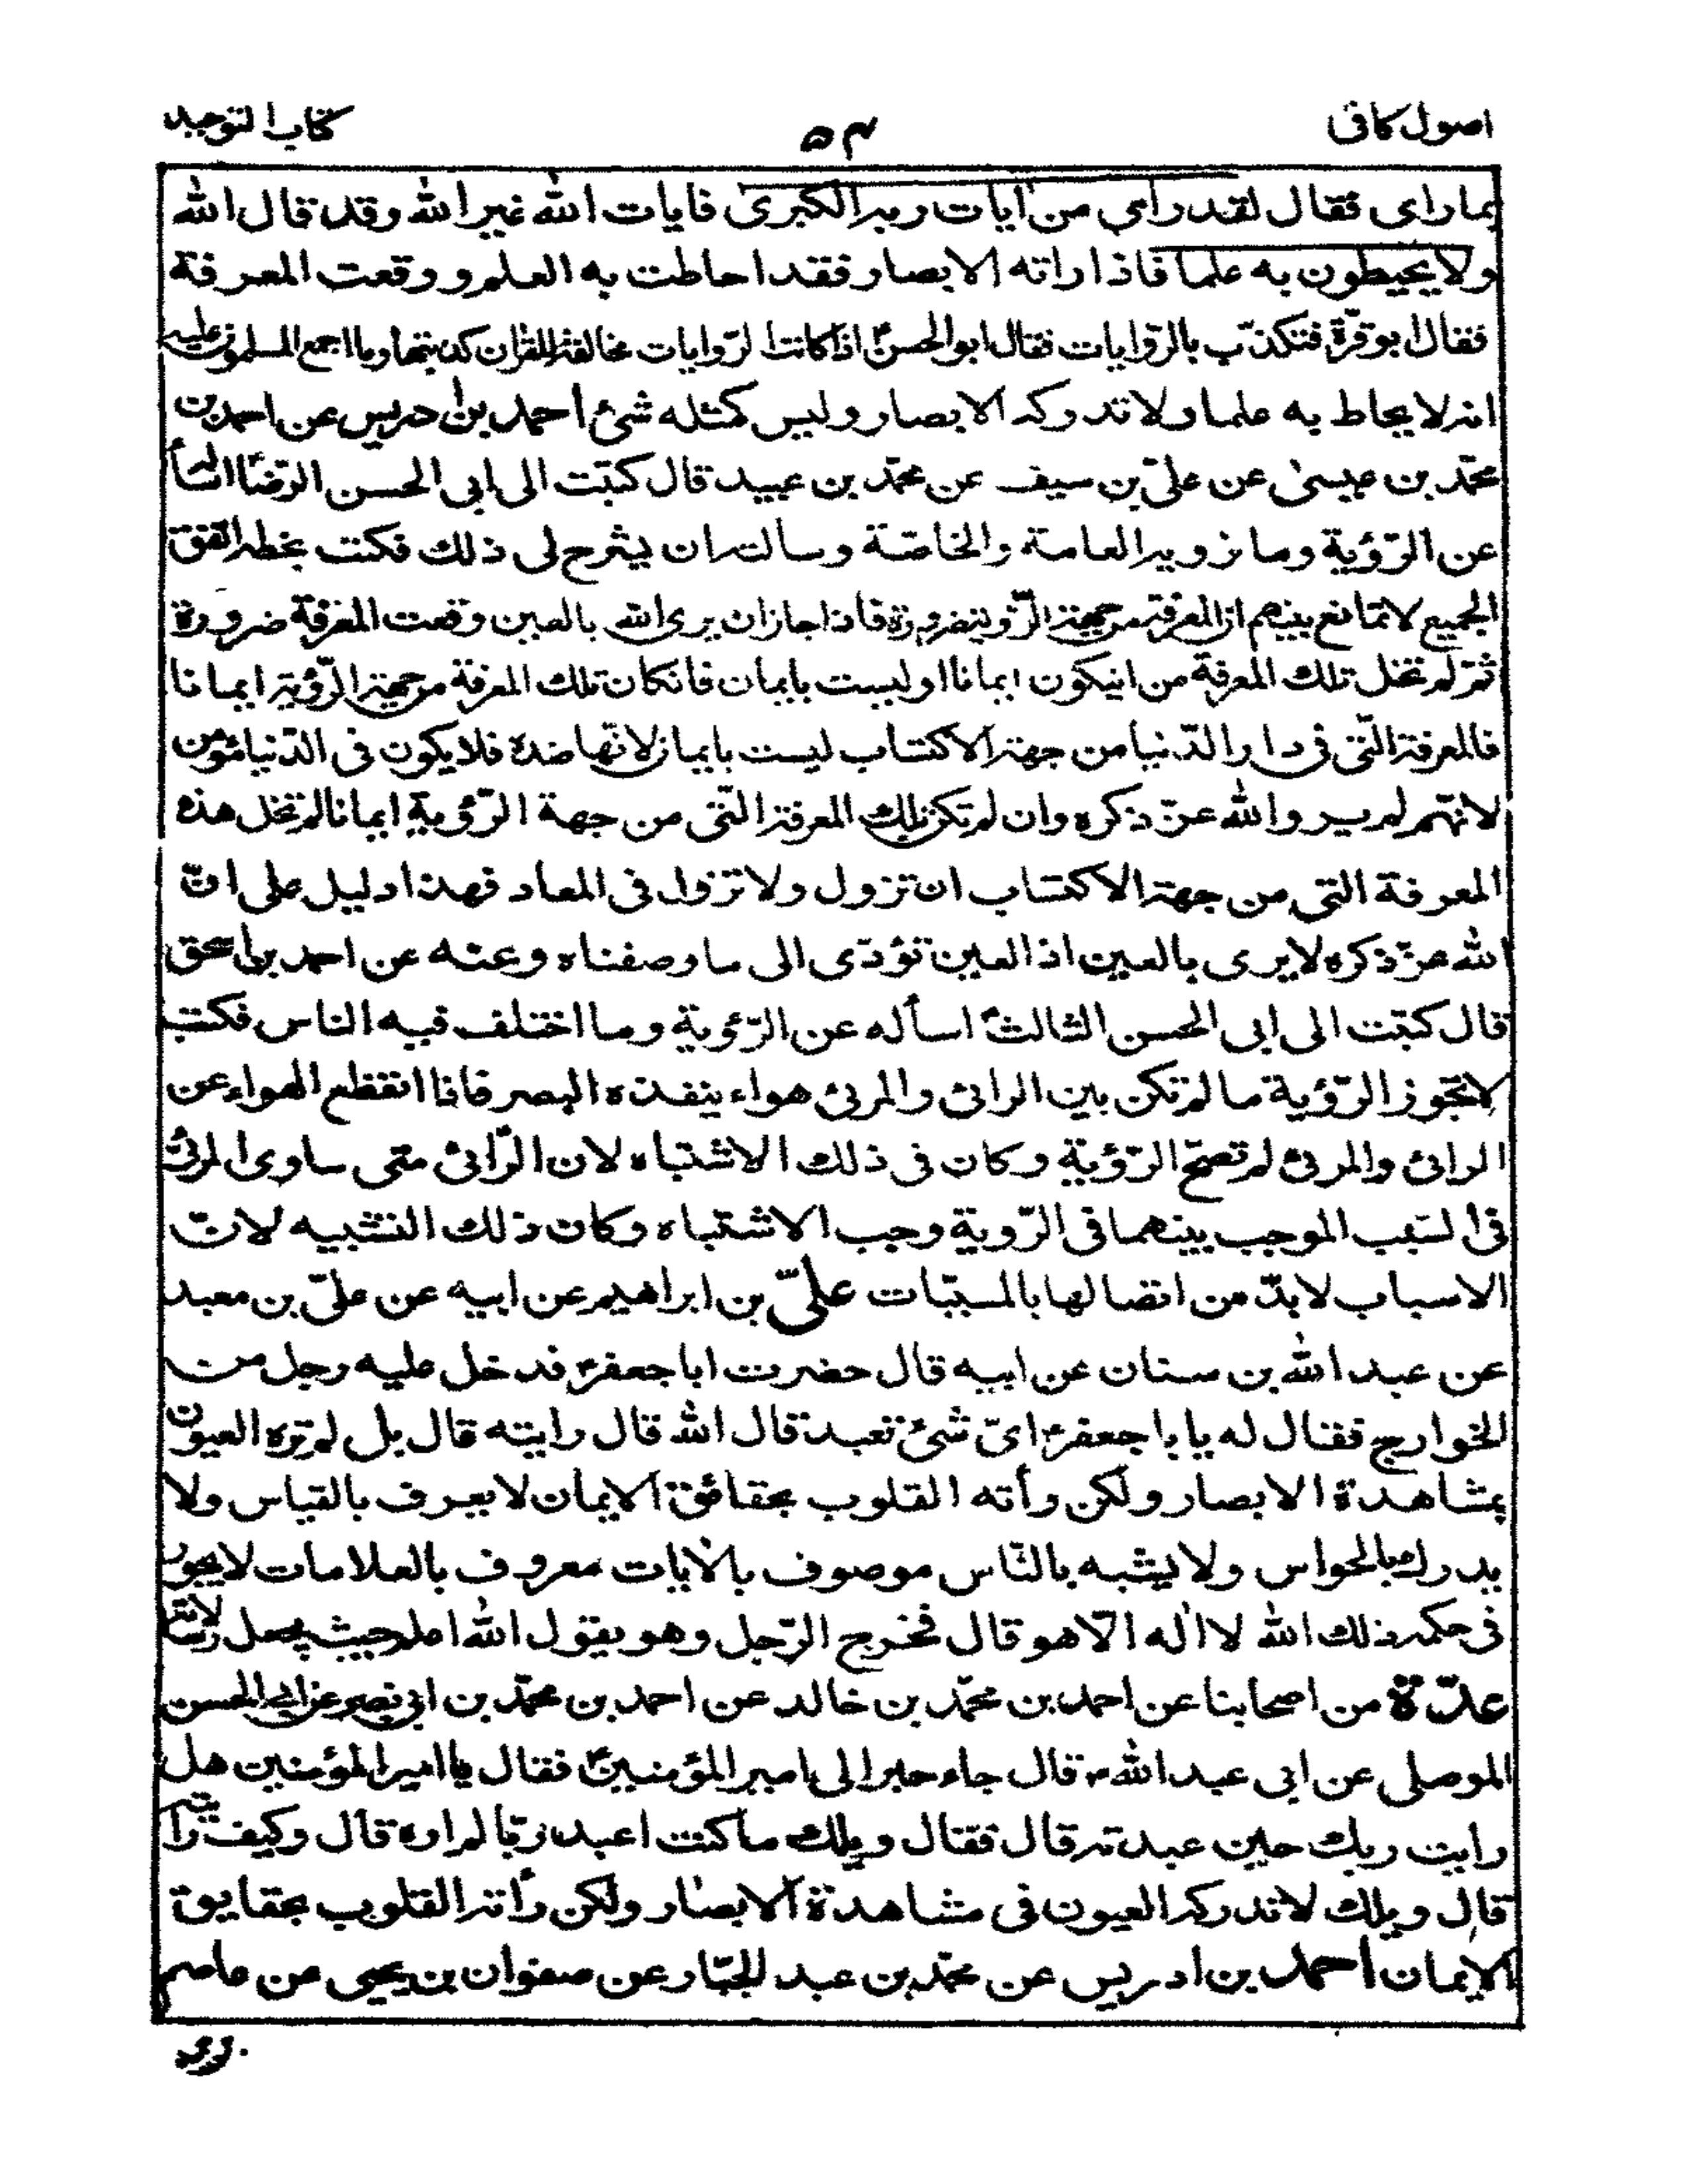 اصول كافى
٥٣
كتاب التوحيد
بما راى فقال لقد راى من آيات ربه الكبرى فايات الله غير الله وقد قال الله
ولا يحيطون به علما فاذا راته الابصار فقد احاطت به العلم ووقعت المعرفة
فقال ابو قرّة فتكذّب بالرّوايات فقال ابو الحسنؑ اذا كانت الرّوايات مخالفة للقران كذبتها وما اجمع المسلمون عليه
انه لا يحاط به علما ولا تدركه الابصار وليس كمثله شئ احمد بن ادريس عن احمد بن
محمّد بن عيسى عن علىّ بن سيف عن محمّد بن عبيد قال كتبت الى ابى الحسن الرّضاؑ اسأله
عن الرّؤية وما ترويه العامة والخاصّة وسالته ان يشرح لى ذلك فكتب بخطه اتفق
الجميع لا تمانع بينهم ان المعرفة من جهة الرّؤية ضرورة فاذا جاز ان يرى الله بالعين وقعت المعرفة ضرورة
ثمّ لم تخل تلك المعرفة من ان يكون ايمانا او ليست بايمان فان كان تلك المعرفة من جهة الرّؤية ايمانا
فالمعرفة الّتى فى دار الدّنيا من جهة الاكتساب ليست بايمان لانّها ضده فلا يكون فى الدّنيا مؤمن
لانّهم لم يروا الله عزّ ذكره وان لم تكن تلك المعرفة الّتى من جهة الرّؤية ايمانا لم تخل هذه
المعرفة التى من جهة الاكتساب ان تزول ولا تزول فى المعاد فهذا دليل على انّ
الله عزّ ذكره لا يرى بالعين اذ العين تؤدّى الى ما وصفناه وعنه عن احمد بن اسحق
قال كتبت الى ابى الحسن الثالثؑ اسأله عن الرّؤية وما اختلف فيه الناس فكتب
لا تجوز الرّؤية ما لم تكن بين الرائ والمرئ هواء ينفذه البصر فاذا انقطع الهواء عن
الرائ والمرئ لم تصحّ الرّؤية وكان فى ذلك الاشتباه لان الرّائ متى ساوى المرئ
فى السّبب الموجب بينهما فى الرّوية وجب الاشتباه وكان ذلك التشبيه لانّ
الاسباب لا بدّ من اتصالها بالمسبّبات علىّ بن ابراهيم عن ابيه عن علىّ بن معبد
عن عبد الله بن سنان عن ابيه قال حضرت ابا جعفرؑ فدخل عليه رجل من
الخوارج فقال له يا با جعفرؑ اىّ شئ تعبد قال الله قال رايته قال بل لم تره العيون
بمشاهدة الابصار ولكن رأته القلوب بحقائق الايمان لا يعرف بالقياس ولا
يدرك بالحواس ولا يشبه بالنّاس موصوف بالايات معروف بالعلامات لا يجور
فى حكمه ذلك الله لا اله الّا هو قال فخرج الرّجل وهو يقول الله اعلم حيث يجعل رسالته
عدّة من اصحابنا عن احمد بن محمّد بن خالد عن احمد بن محمّد بن ابى نصر عن ابى الحسن
الموصلى عن ابى عبد اللهؑ قال جاء حبر الى امير المؤمنينؑ فقال يا امير المؤمنين هل
رايت ربك حين عبدته قال فقال ويلك ما كنت اعبد ربّا لم اره قال وكيف رأيته
قال ويلك لا تدركه العيون فى مشاهدة الابصار ولكن رأته القلوب بحقايق
الايمان احمد بن ادريس عن محمّد بن عبد الجبّار عن صفوان بن يحيى عن عاصم